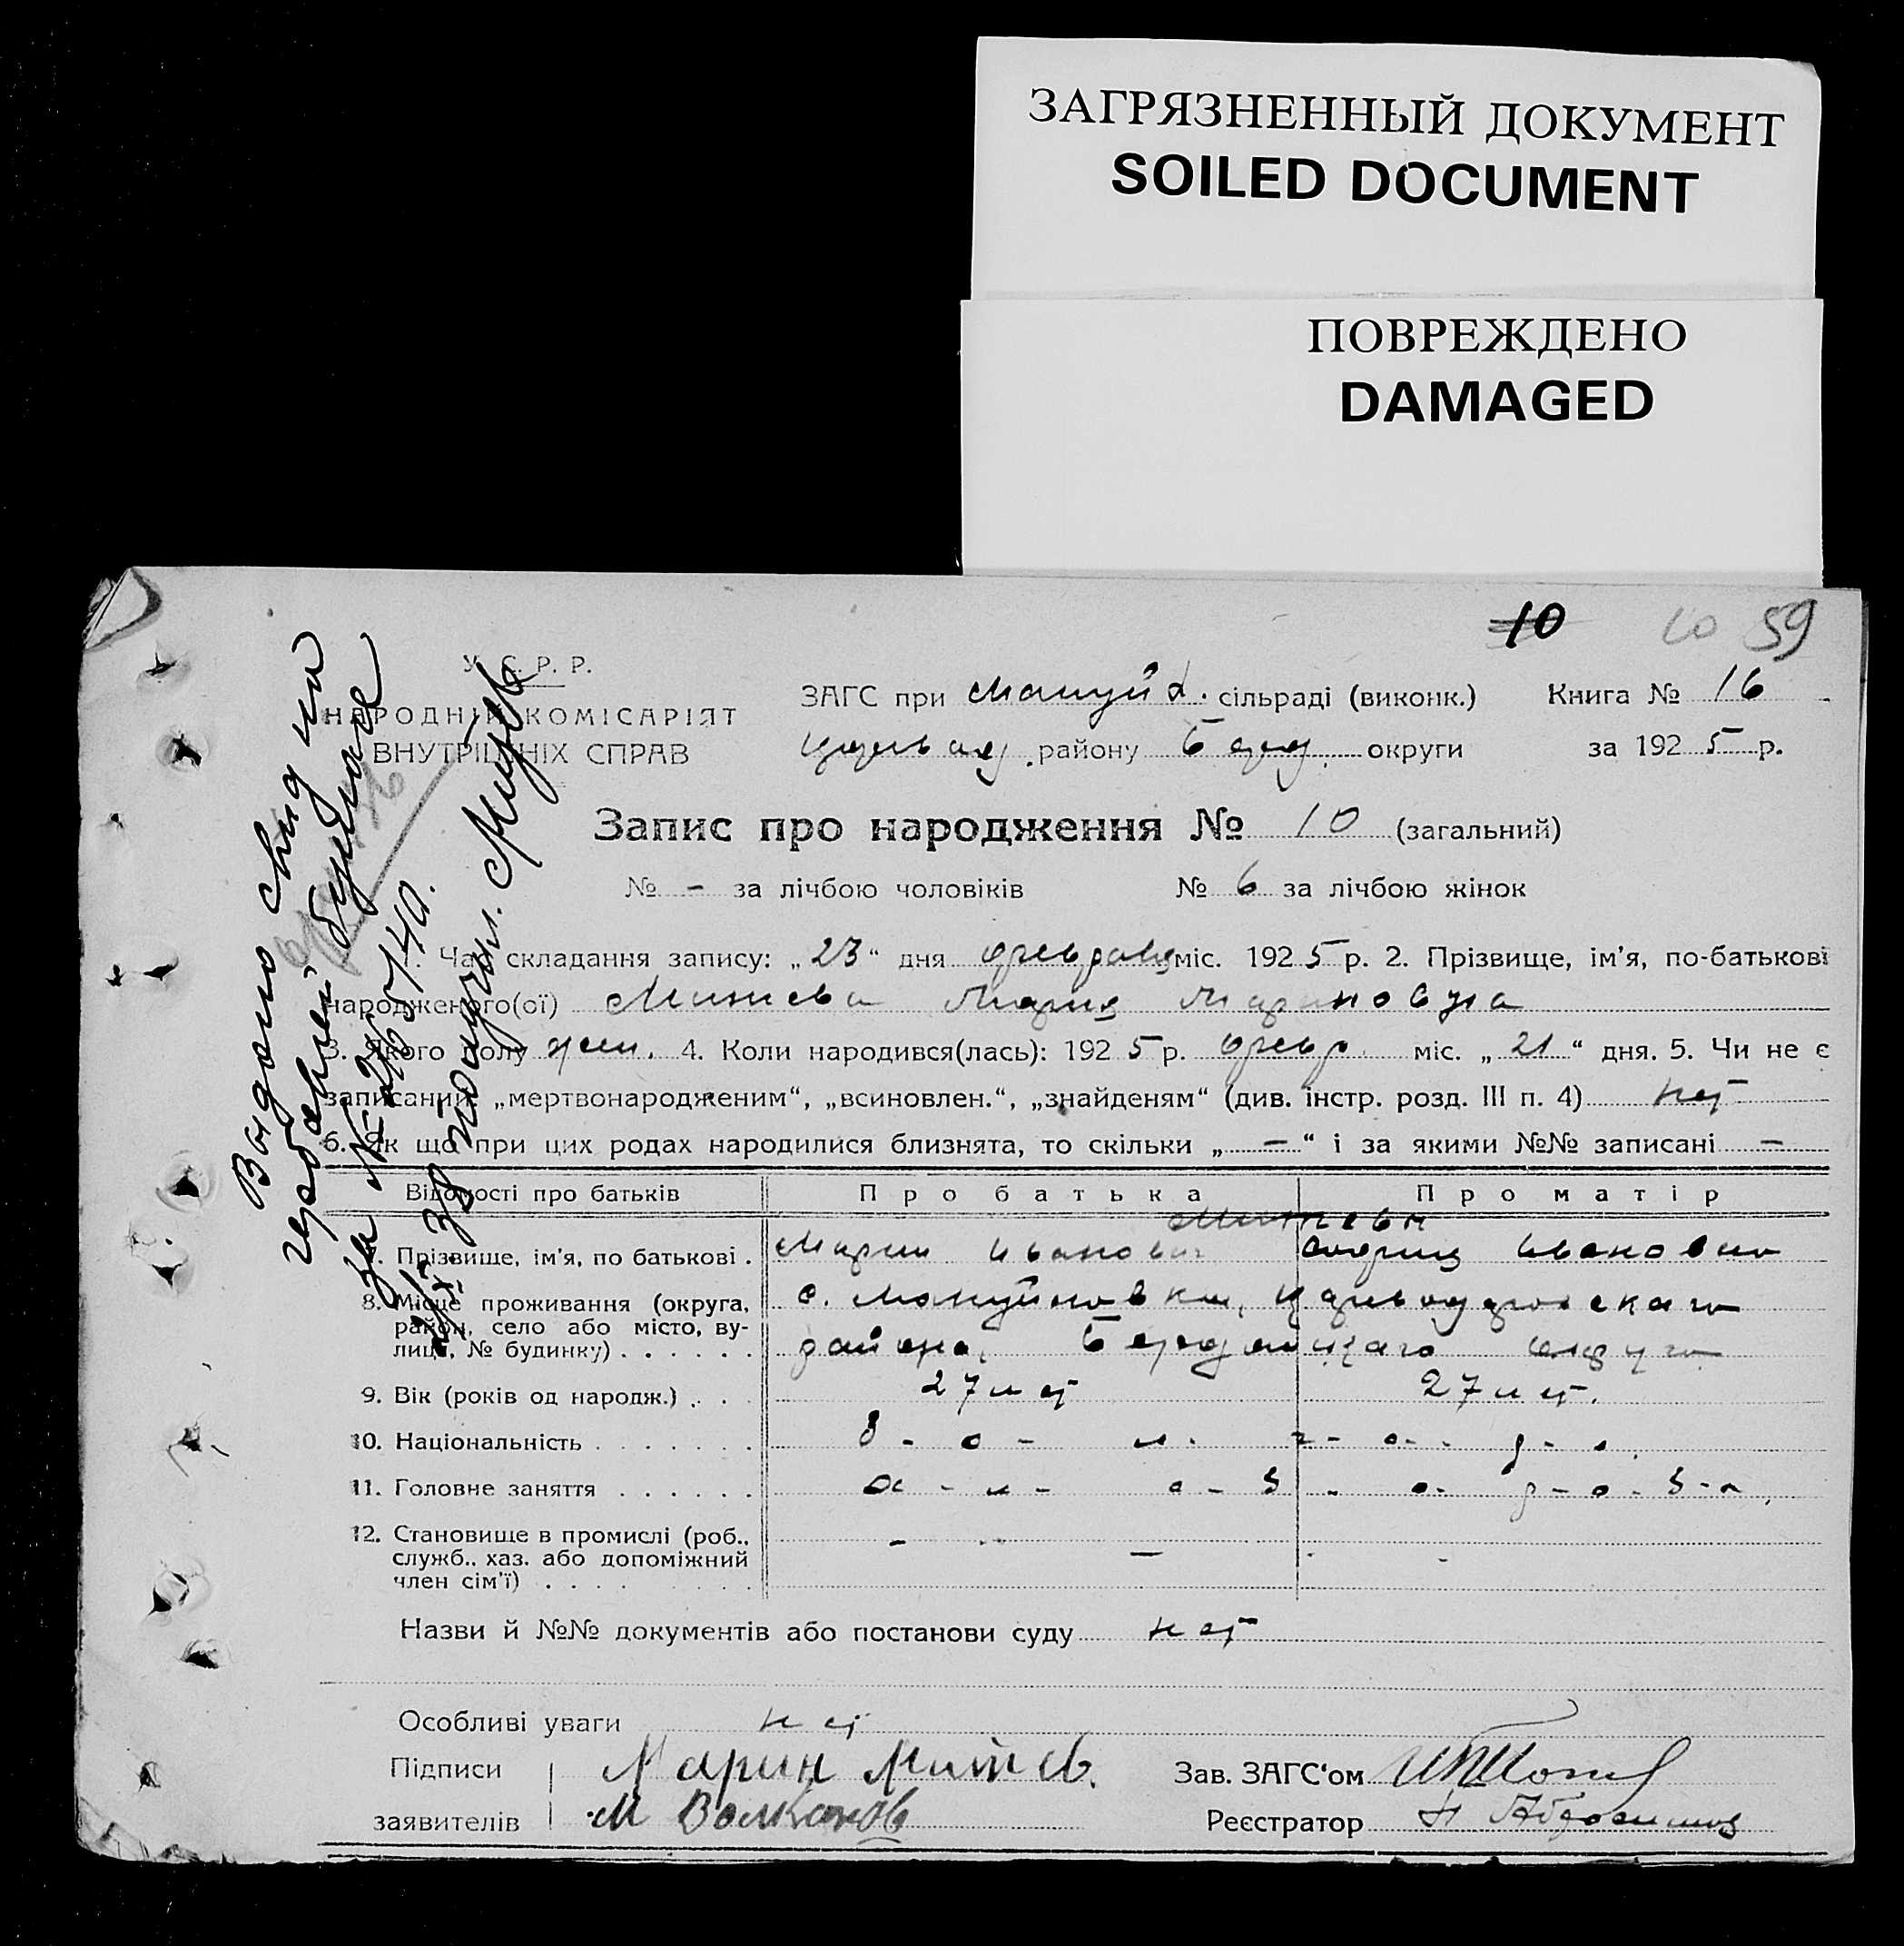 ЗАГРЯЗНЕННЫЙ ДОКУМЕНТ
SOILED DOCUMENT
ПОВРЕЖДЕНО
DAMAGED
10 10 59
У. С. Р. Р.
НАРОДНІЙ КОМІСАРІЯТ
ВНУТРІШНІХ СПРАВ
ЗАГС при Мануйл. сільраді (виконк.) Книга № 16
району Берд. округи за 1925 р.
Запис про народження № 10 (загальний)
№ - за лічбою чоловіків № 6 за лічбою жінок
1. Час складання запису: „23“ дня февраля міс. 1925 р. 2. Прізвище, ім'я, по-батькові
народженого(ої) Митева Мария Мариновна
3. Якого полу жен. 4. Коли народився(лась): 1925 р. февр. міс. „21“ дня. 5. Чи не є
записаний: „мертвонародженим“, „всиновлен.“, „знайденям“ (див. інстр. розд. III п. 4) нет
6. Як що при цих родах народилися близнята, то скільки „—“ і за якими №№ записані —
Відомості про батьків Про батька Про матір
7. Прізвище, ім'я, по батькові . Марин Иванович Ивановна
8. Місце проживання (округа, с. Мануйловка,
район, село або місто, ву- района, округа
лиця, № будинку) . . . . . .
9. Вік (років од народж.) . . . 27 лет 27 лет.
10. Національність . . . . . . .
11. Головне заняття . . . . . .
12. Становище в промислі (роб.,
служб., хаз. або допоміжний
член сім'ї) . . . .
Назви й №№ документів або постанови суду нет
Особливі уваги нет
Підписи Марин Митев. Зав. ЗАГС‘ом
заявителів М Волканов Реєстратор
Выдано свид на
гербовой бумаге
за №
за получ.